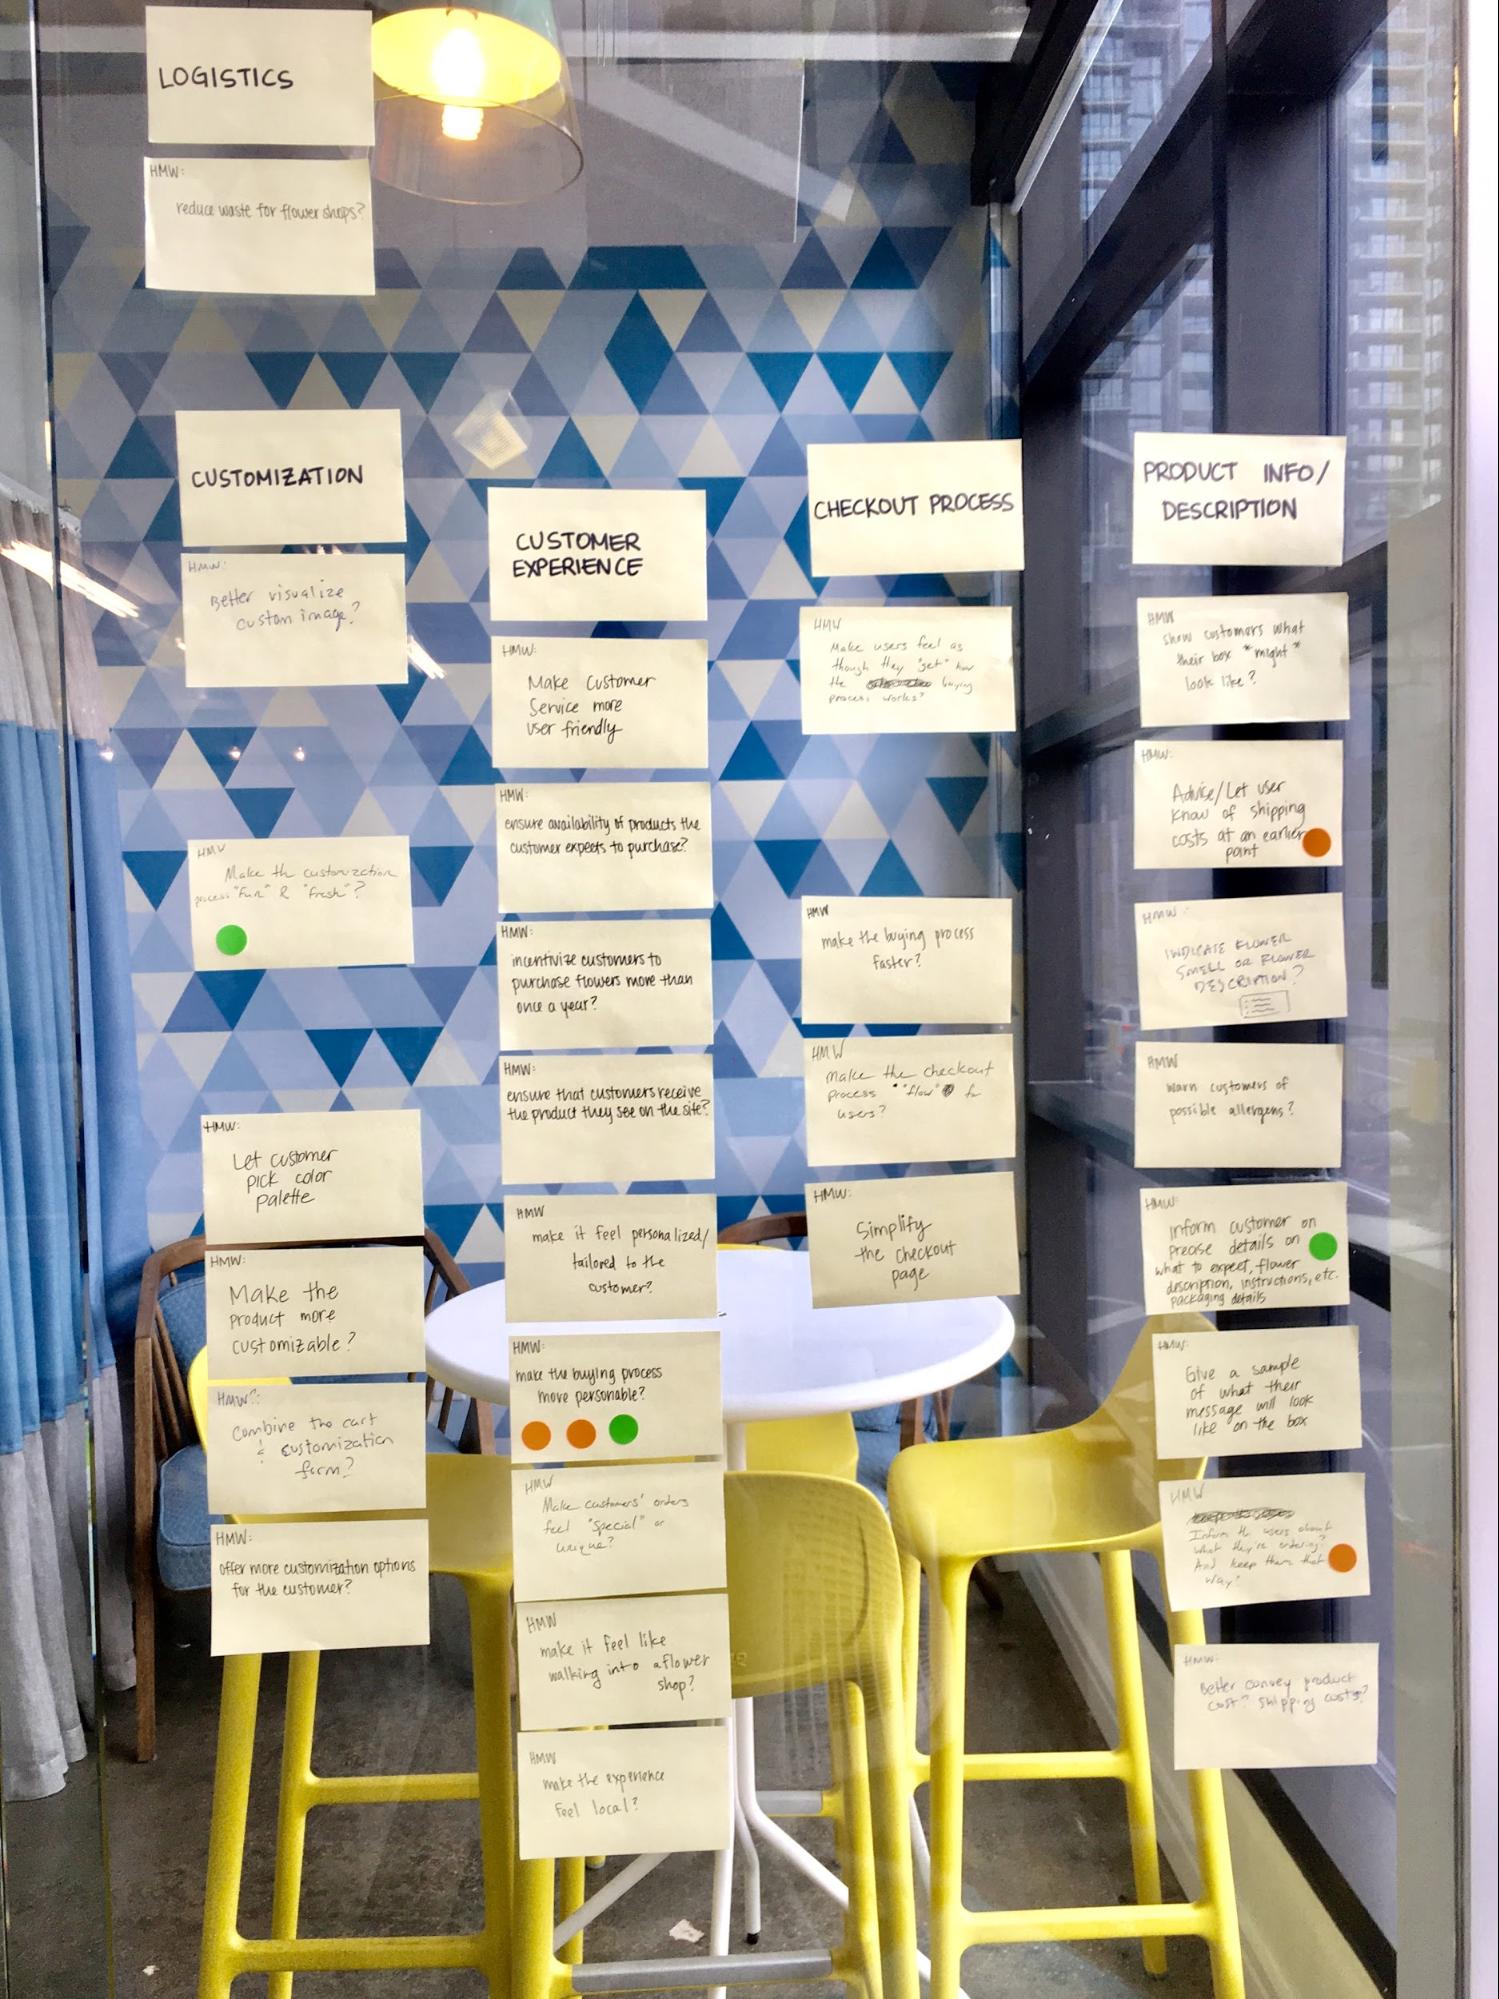 LOGISTICS
HMW:
reduce waste for flower shops?
CUSTOMIZATION
HMW:
Better visualize
custom image?
HMW
Make the customization
process "fun" & "fresh"?
HMW:
Let customer
pick color
palette
HMW:
Make the
product more
customizable?
HMW?:
Combine the cart
& customization
form?
HMW:
offer more customization options
for the customer?
CUSTOMER
EXPERIENCE
HMW:
Make Customer
Service more
user friendly
HMW:
ensure availability of products the
customer expects to purchase?
HMW:
incentivize customers to
purchase flowers more than
once a year?
HMW:
ensure that customers receive
the product they see on the site?
HMW
make it feel personalized/
tailored to the
customer?
HMW:
make the buying process
more personable?
HMW
Make customers' orders
feel "special" or
unique?
HMW
make it feel like
walking into a flower
shop?
HMW
make the experience
feel local?
CHECKOUT PROCESS
HMW
Make users feel as
though they "get" how
the buying
process works?
HMW
make the buying process
faster?
HMW
Make the checkout
process "flow" for
users?
HMW:
Simplify
the checkout
page
PRODUCT INFO/
DESCRIPTION
HMW
show customers what
their box *might*
look like?
HMW:
Advise/Let user
know of shipping
costs at an earlier
point
HMW:
INDICATE FLOWER
SMELL OR FLOWER
DESCRIPTION?
HMW
warn customers of
possible allergens?
HMW:
inform customer on
precise details on
what to expect, flower
description, instructions, etc.
packaging details
HMW:
Give a sample
of what their
message will look
like on the box
HMW
Inform the users about
what they're ordering?
And keep them that
way?
HMW:
Better convey product
cost? Shipping costs?